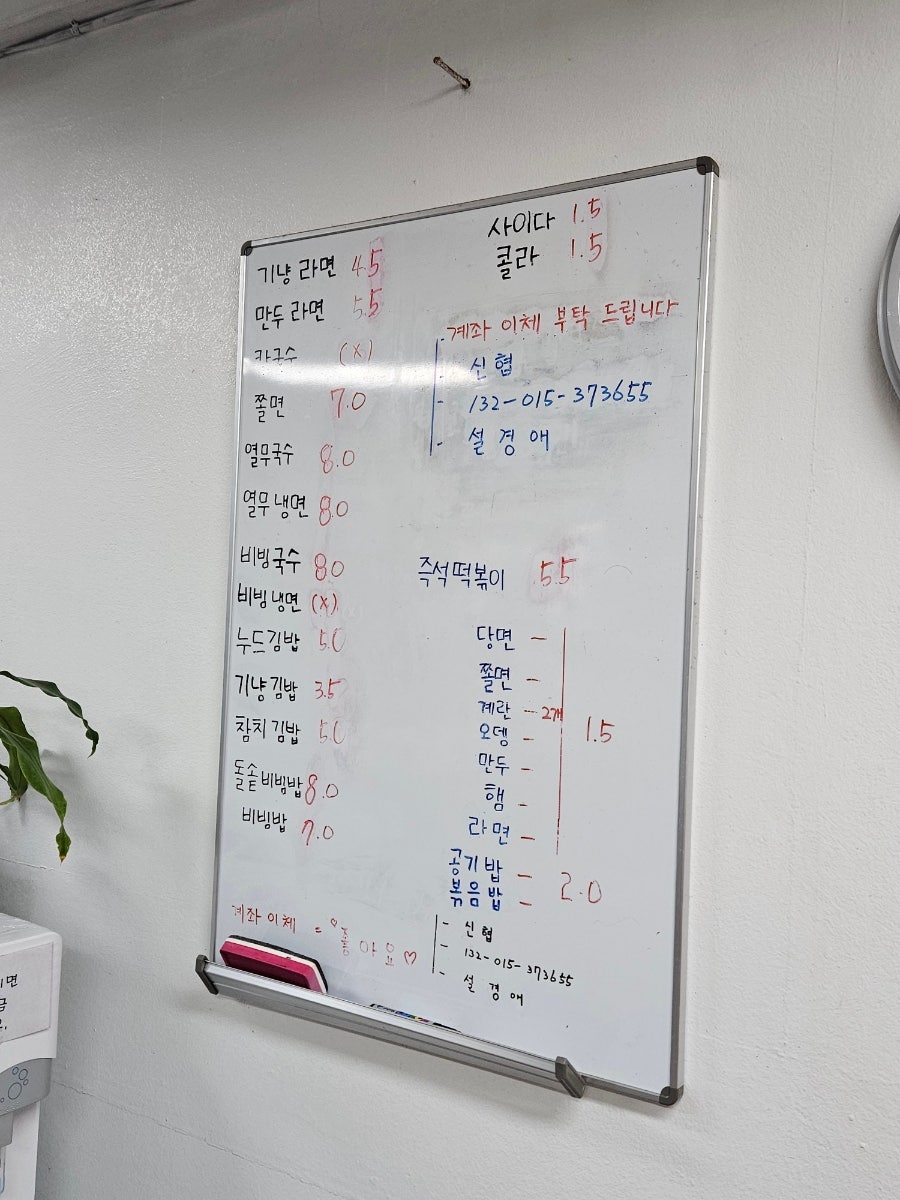 기냥 라면 4.5
만두 라면 5.5
칼국수 (x)
쫄면 7.0
열무국수 8.0
열무 냉면 8.0
비빔국수 8.0
비빔 냉면 (x)
누드김밥 5.0
기냥 김밥 3.5
참치 김밥 5.0
돌솥 비빔밥 8.0
비빔밥 7.0
계좌 이체 = ♡좋아요♡
사이다 1.5
콜라 1.5
계좌 이체 부탁 드립니다
- 신협
- 132-015-373655
- 설경애
즉석떡볶이 5.5
당면 -
쫄면 -
계란 - 2개
오뎅 -
만두 -
햄 -
라면 -
1.5
공기밥 -
볶음밥 -
2.0
- 신협
- 132-015-373655
- 설경애